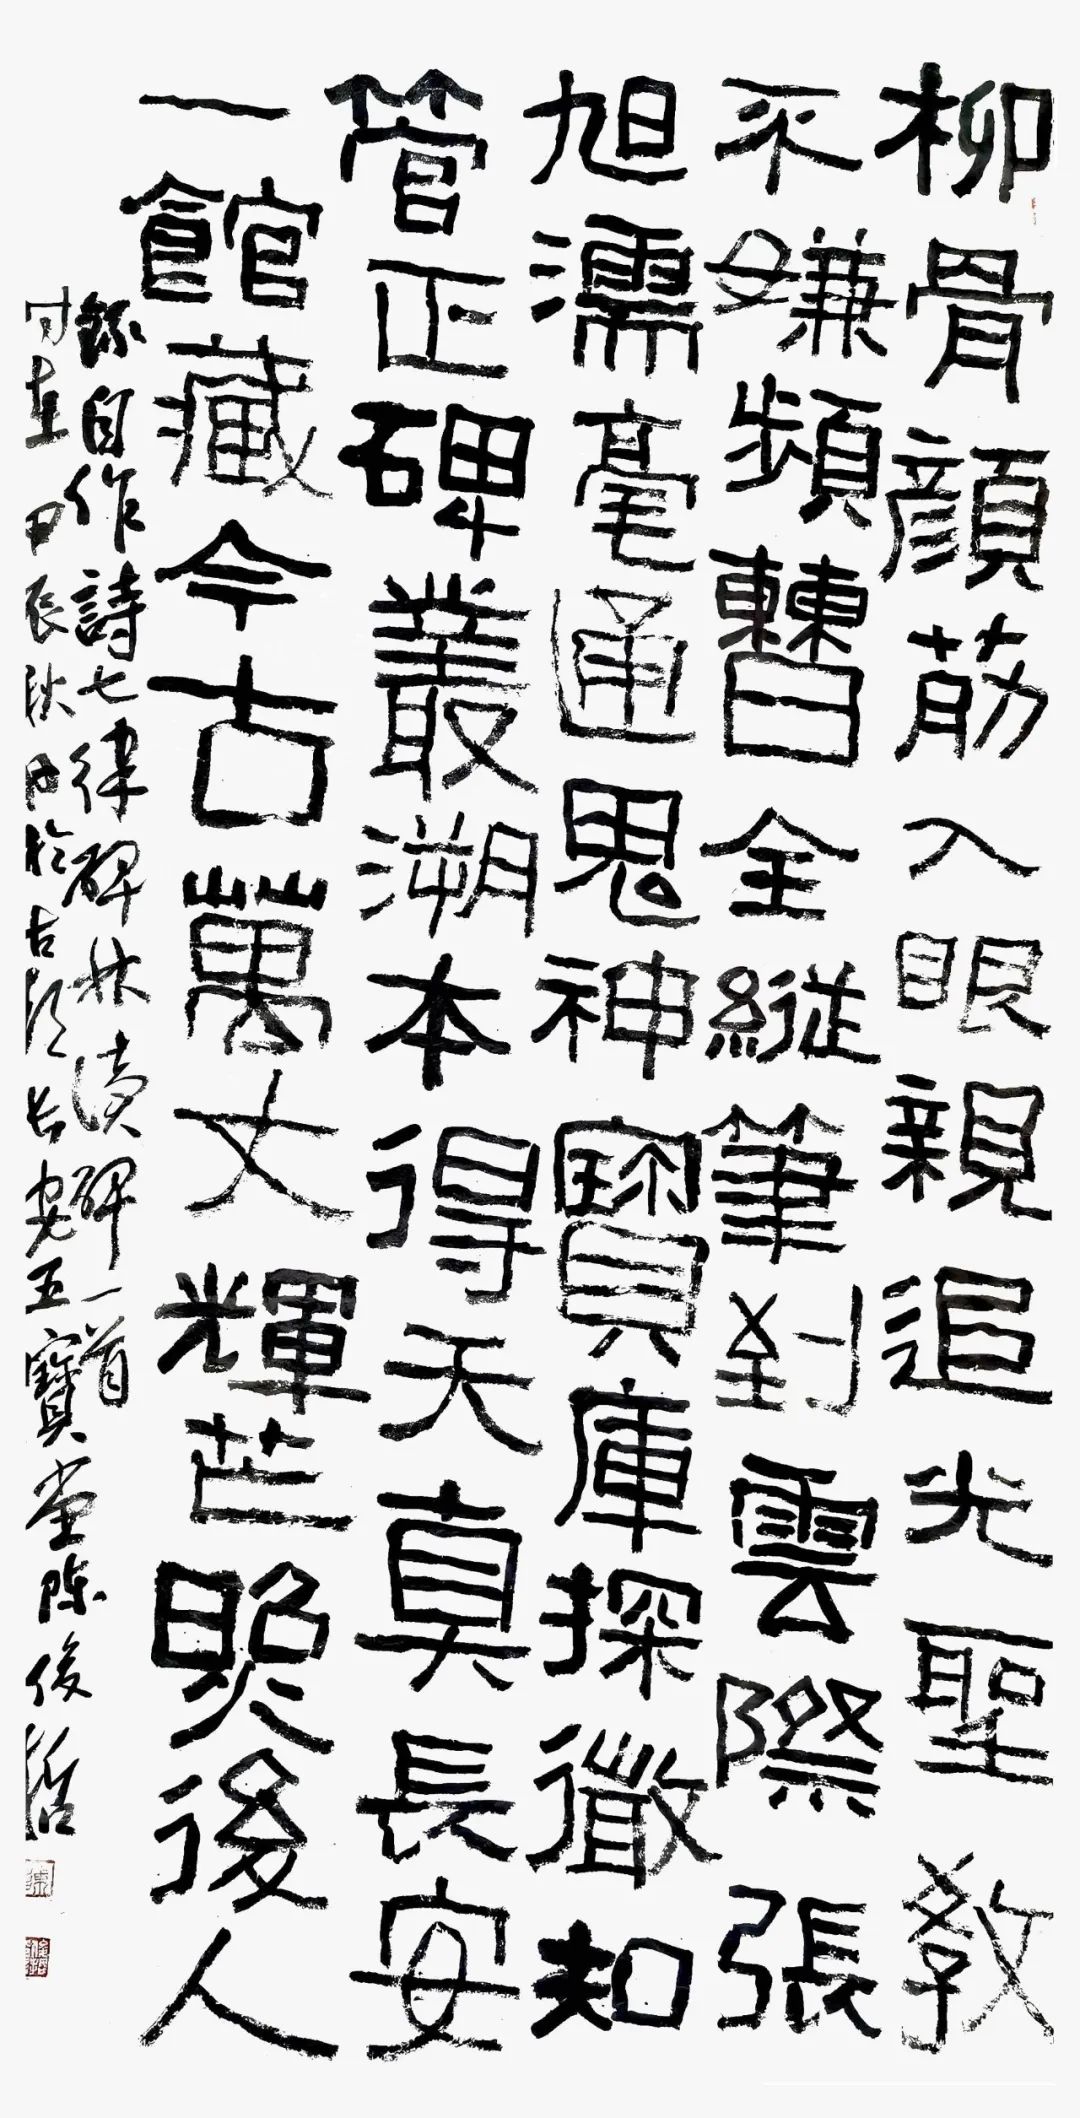 柳骨顏筋入眼親追光聖教
不嫌頻轉曰全縱筆到雲際張
旭濡毫通鬼神寶庫探徵知
管正碑叢溯本得天真長安
一館藏今古萬丈輝芒照後人
錄自作詩七律碑林讀碑一首
时在甲辰秋月於古都长安五寶堂陈俊哲